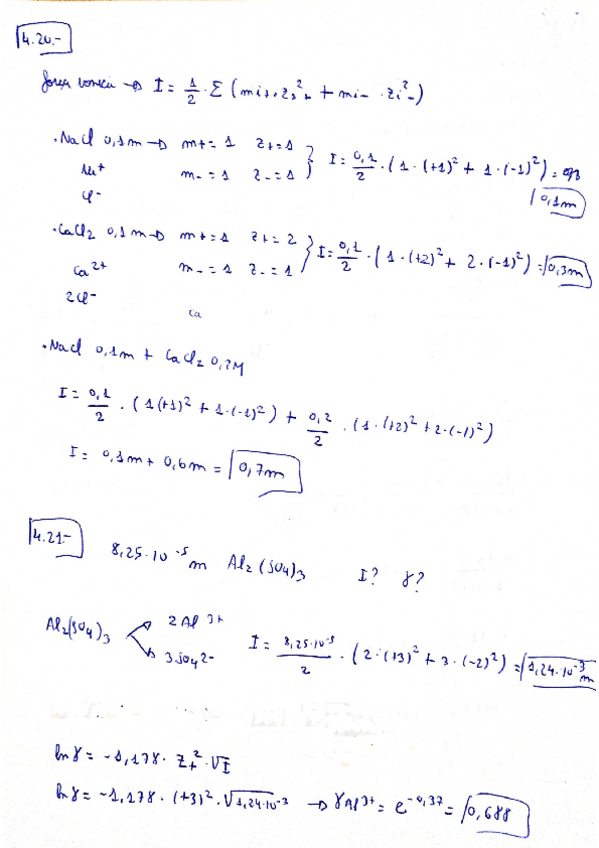 4.20.-
força iónica → I = 1/2 · Σ (mi+ · zi²+ + mi- · zi²-)
· NaCl 0,1m → m+ = 1 z+ = 1 } I = 0,1/2 · (1 · (+1)² + 1 · (-1)²) =
Na+ m- = 1 z- = 1
Cl-
0,1m
· CaCl2 0,1m → m+ = 1 z+ = 2 } I = 0,1/2 · (1 · (+2)² + 2 · (-1)²) = 0,3m
Ca2+ m- = 1 z- = 1
2Cl-
Ca
· NaCl 0,1m + CaCl2 0,2M
I = 0,1/2 · (1(+1)² + 1·(-1)²) + 0,2/2 · (1·(+2)² + 2·(-1)²)
I = 0,1m + 0,6m = 0,7m
4.21.-
8,25·10⁻⁵ m Al2(SO4)3 I? γ?
Al2(SO4)3 → 2Al3+
→ 3SO42-
I = 8,25·10⁻⁵/2 · (2·(+3)² + 3·(-2)²) = 1,24·10⁻³ m
ln γ = -1,178 · Z+² · √I
ln γ = -1,178 · (+3)² · √1,24·10⁻³ → γAl3+ = e^-0,37 = 0,688